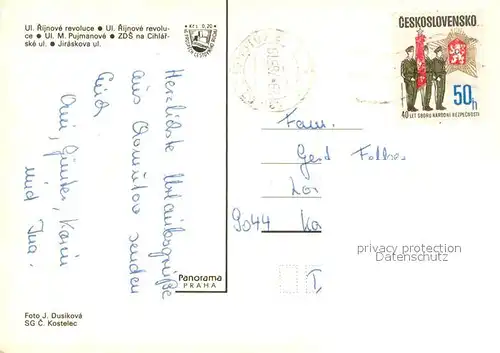 Ul. Říjnové revoluce ● Ul. Říjnové revolu-
ce ● Ul. M. Pujmanové ● ZDŠ na Cihlář-
ské ul. ● Jiráskova ul.
Kčs 0,20
ČESKOSLOVENSKO
50h
40 LET SBORU NÁRODNÍ BEZPEČNOSTI
Herzlichste Urlaubsgrüße
aus Chomutov senden
Euch
Günter, Karin
und Ina.
Fam.
Gerd
9044 Ka
privacy protection
Datenschutz
Panorama
PRAHA
Foto J. Dusíková
SG Č. Kostelec